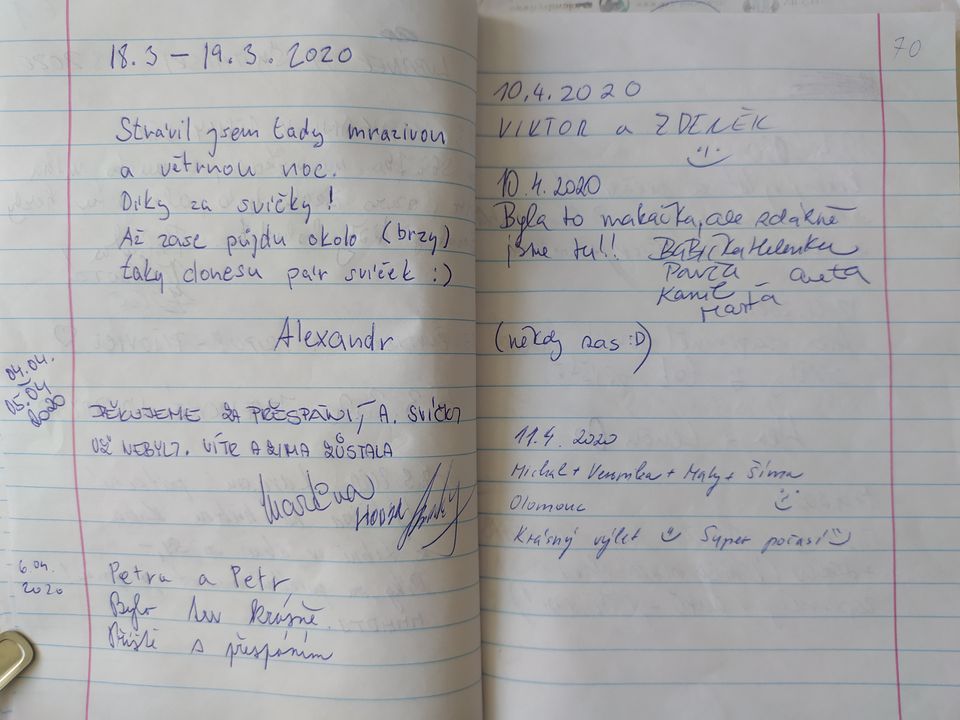 18.3 – 19.3. 2020
Strávil jsem tady mrazivou
a větrnou noc.
Díky za svíčky!
Až zase půjdu okolo (brzy)
taky donesu pár svíček :)
Alexandr
04.04.
05.04
2020
DĚKUJEME ZA PŘESPÁNÍ, A. SVÍČKY
UŽ NEBYLY. VÍTR A ZIMA ZŮSTALA
Martina
6.04.
2020
Petra a Petr,
Bylo tu krásně.
Příště s přespáním
70
10.4.2020
VIKTOR a ZDENĚK
10.4.2020
Byla to makačka, ale zdárně
jsme tu!! BaBička Helenka
Pavča aneta
Kamil
Marťa
(někdy zas :D)
11.4. 2020
Michal + Veronika + Maky + Šíma
Olomouc
Krásný výlet Super počasí